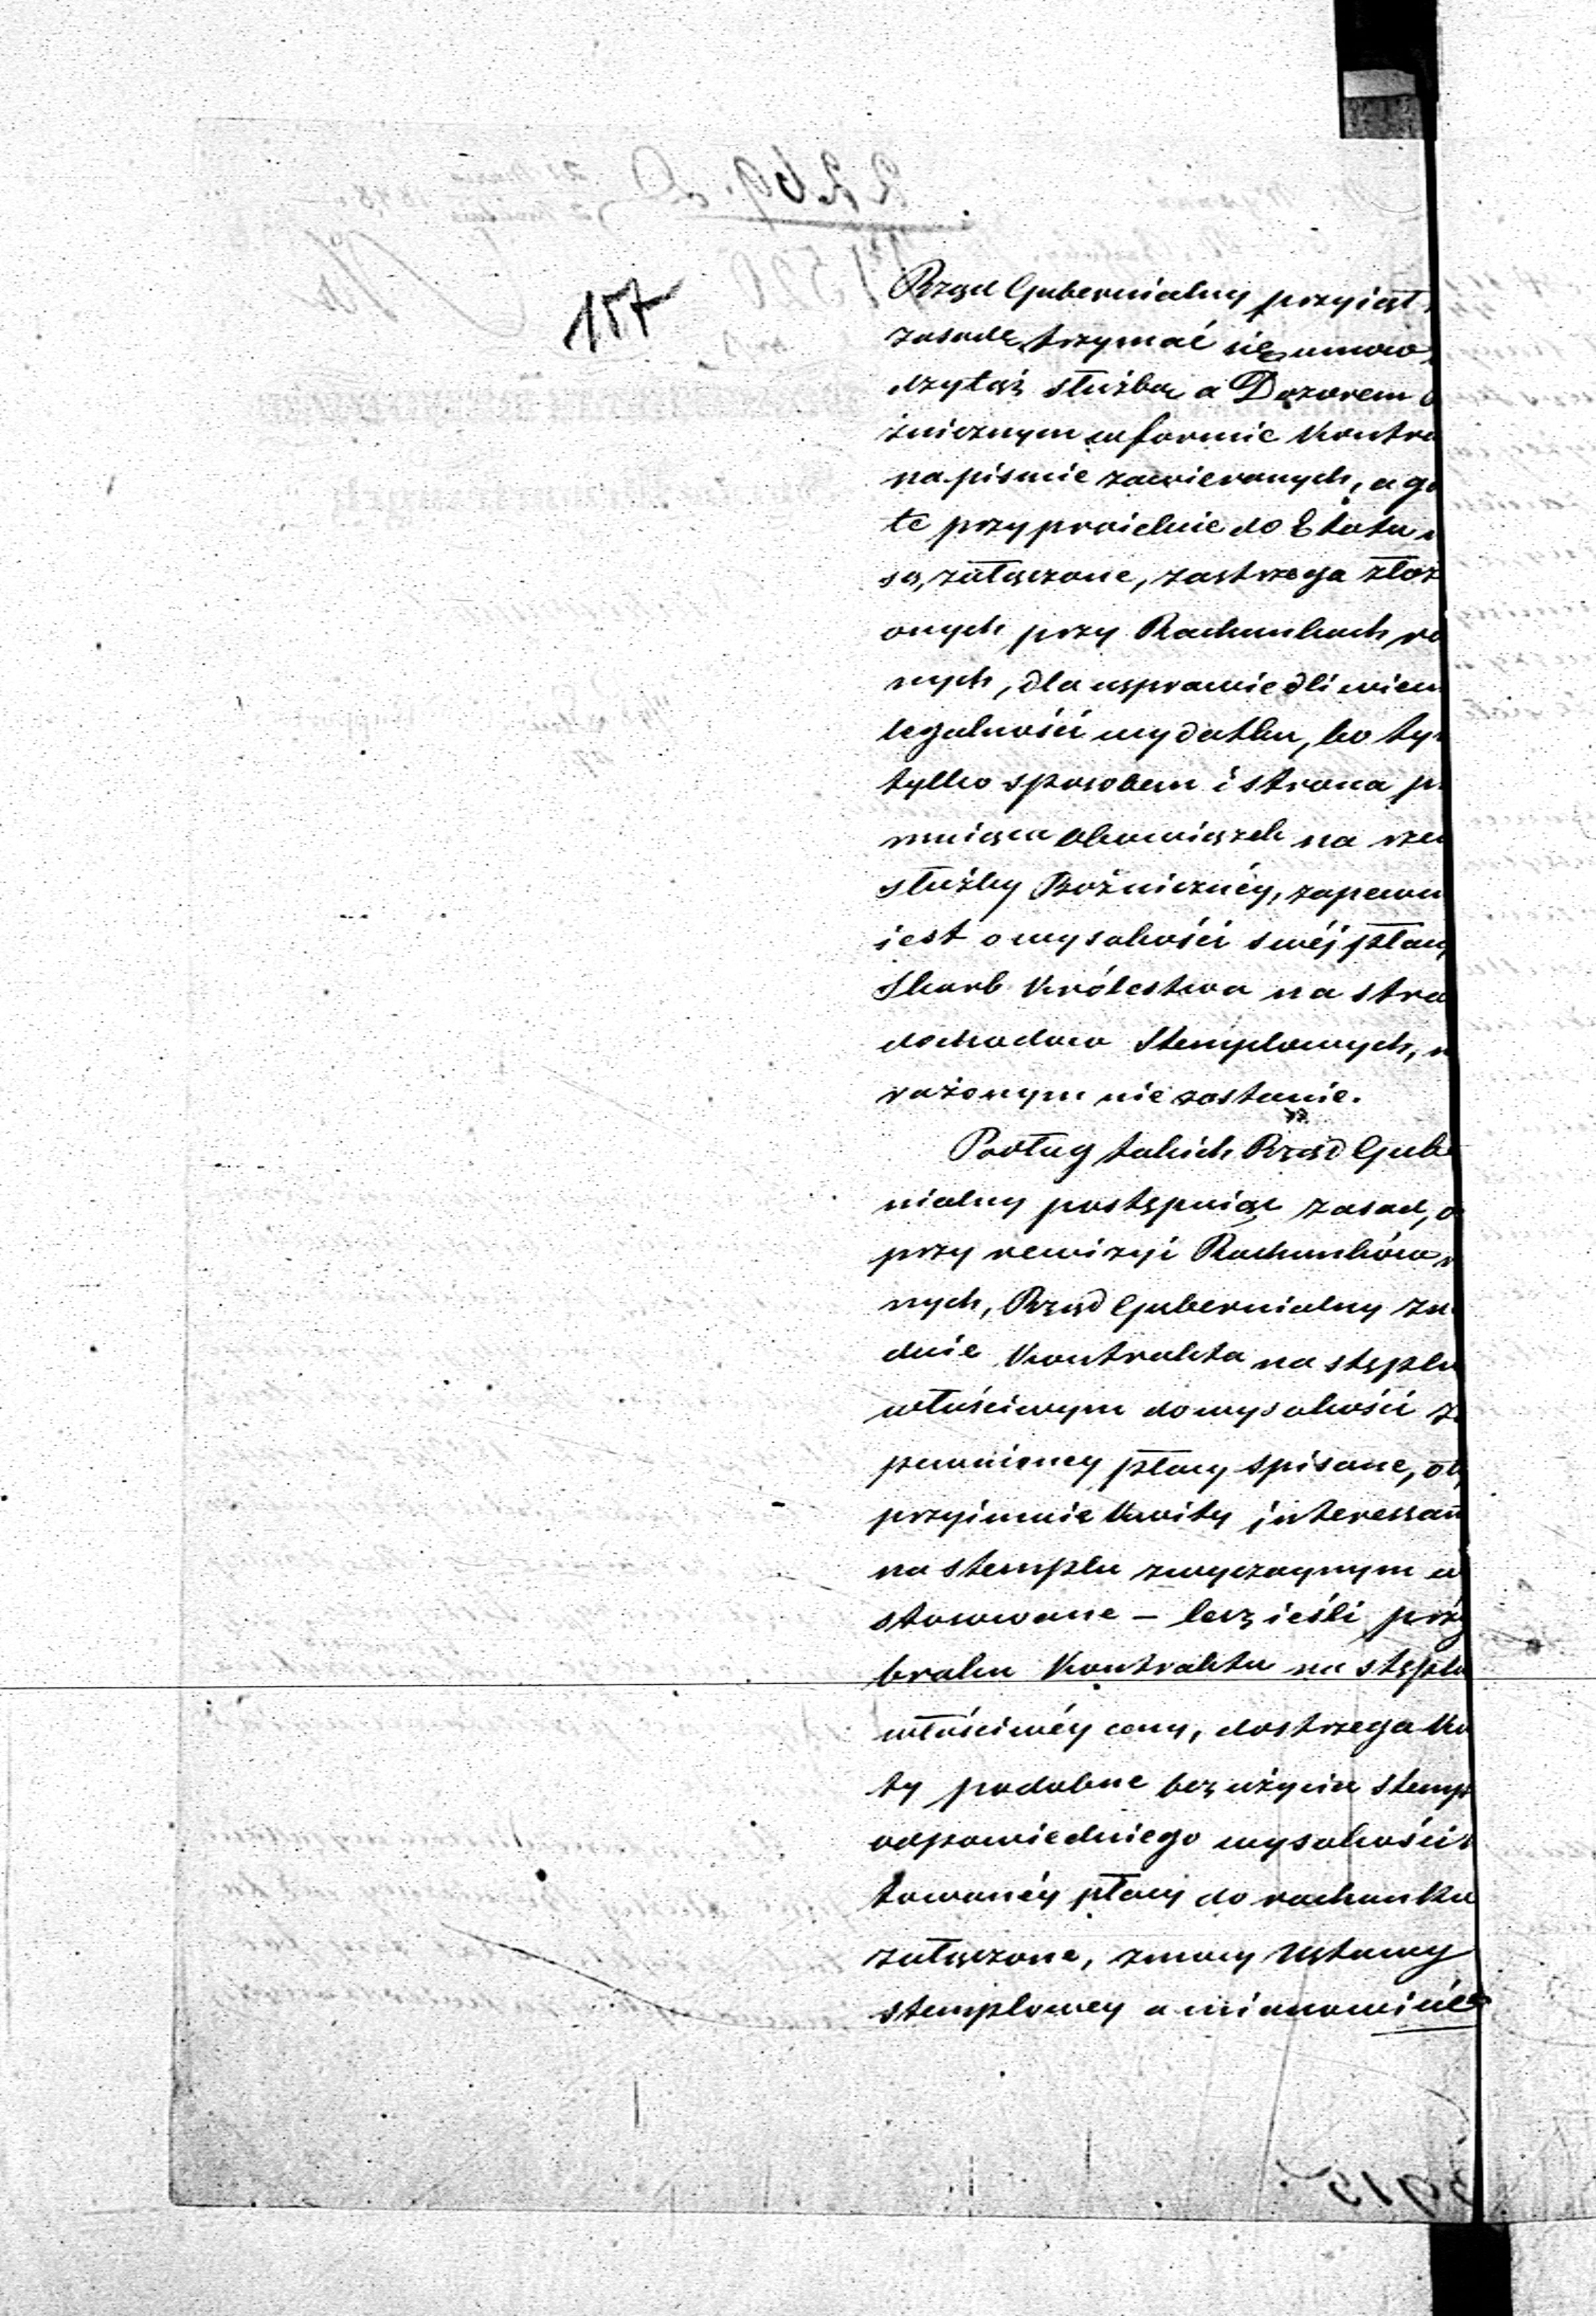 157
Rząd Gubernialny przyiął
zasadę trzymać się umów
dzy taż służbą a Dozorem
żnicznym w formie Kontra
na piśmie zawieranych, a g
te przy proiekcie do Etatu
są załączone, zastrzega złoż
onych przy Rachunkach ro
nych, dla usprawiedliwien
legalności wydatku, bo ty
tylko sposobem i strona p
muiąca obowiązek na rze
służby Bożniczney, zapewn
iest o wysokości swéj płacy
Skarb Królestwa na stra
dochodów Stemplowych, n
rażonym nie zostanie.
Podług takich Rząd Gube
nialny postępuiąc zasad, o
przy rewizyi Rachunków
nych, Rząd Gubernialny zn
duie Kontrakta na stęplu
właściwym do wysokości z
pewnioney płacy spisane,
przyimuie Kwity interessan
na stemplu zwyczaynym w
stosowane – lecz ieśli przy
braku Kontraktu na stęplu
właściwéy ceny, dostrzega Kw
ty podobne bez użycia stemp
odpowiedniego wysokości
towanéy płacy do rachunku
załączone, z mocy Ustawy
stemplowey a mianowicie